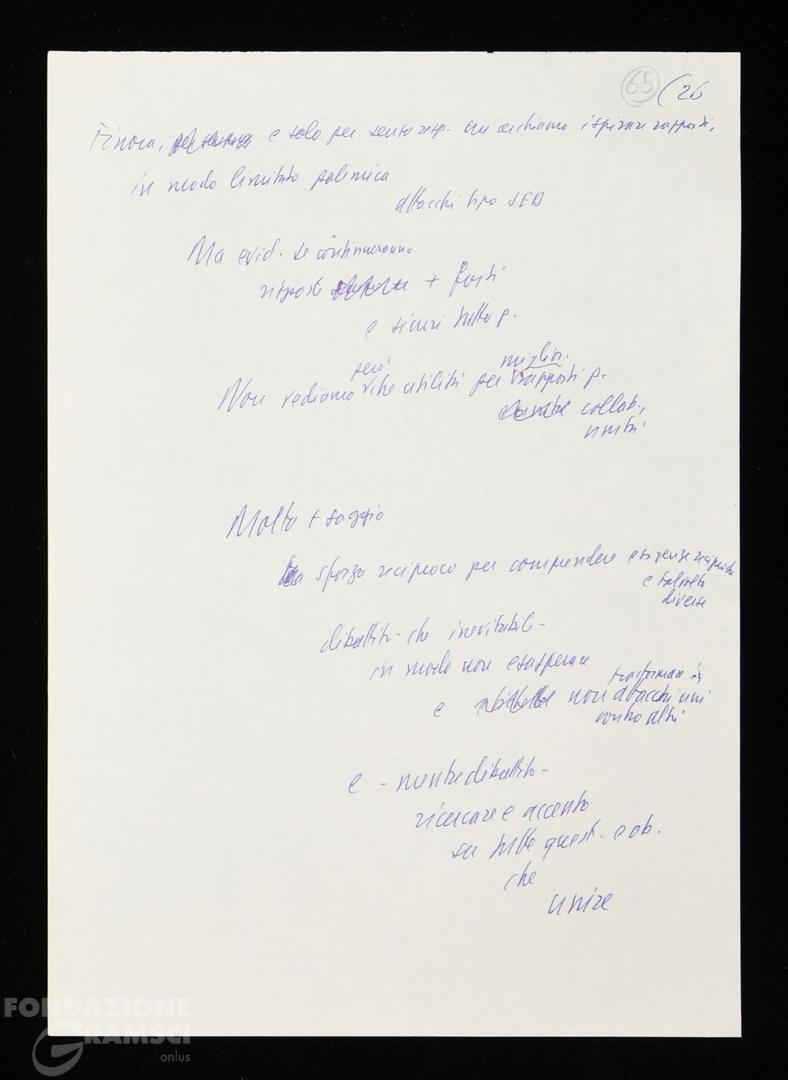 65 (26
Finora, e solo per senso resp. cui cerchiamo ispirare rapporti,
in modo limitato polemica
attacchi tipo SED
Ma evid. se continueranno
risposte + forti
e sicuri tutto p.
però miglior.
Non vediamo che utilità per rapporti p.
collab.,
unità
Molto + saggio
sforzo reciproco per comprendere esigenze reciproche
e talvolta
diverse
dibattito - che inevitabile -
in modo non esasperare
trasformare in
e non attacchi uni
contro altri
e - mentre dibattito -
ricercare e accento
su tutte quest. e ob.
che
unire
FONDAZIONE
GRAMSCI
onlus